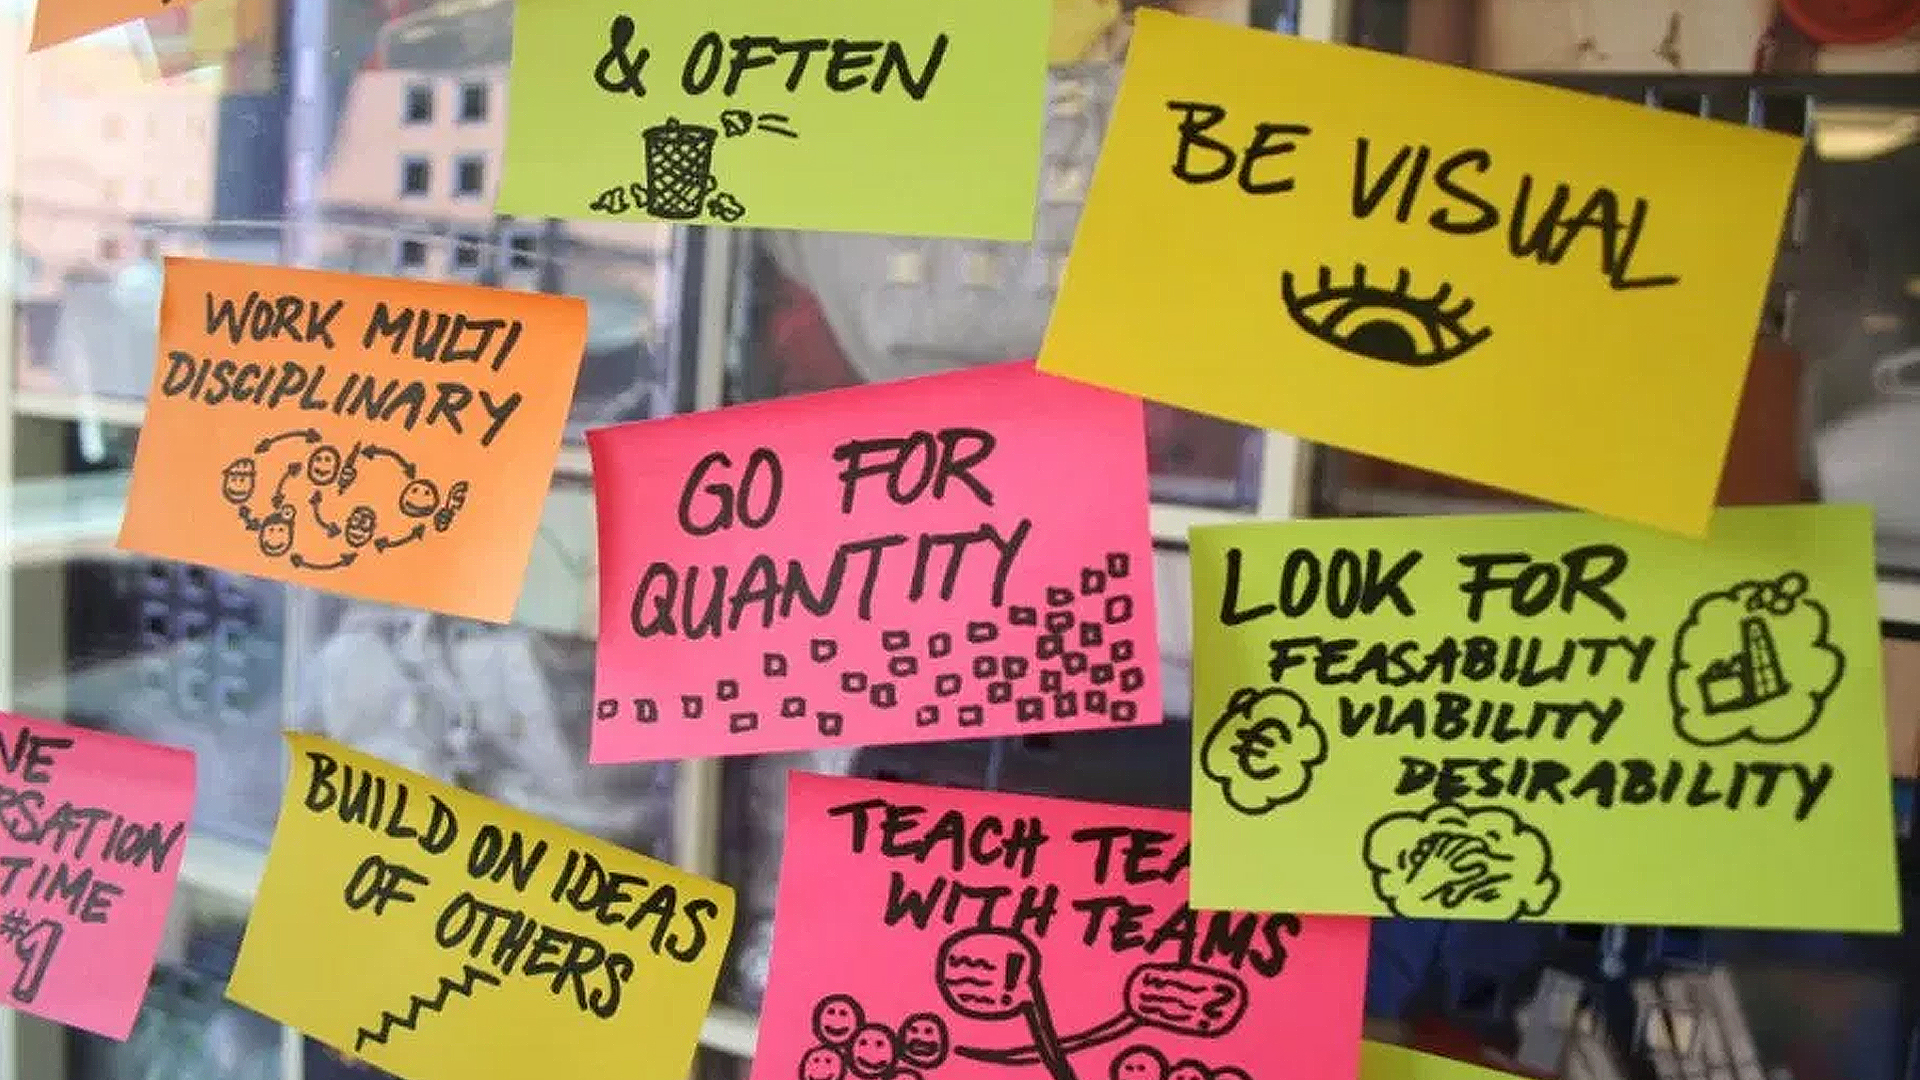 & OFTEN
BE VISUAL
WORK MULTI
DISCIPLINARY
GO FOR
QUANTITY
LOOK FOR
FEASABILITY
€
VIABILITY
DESIRABILITY
TIME
#1
BUILD ON IDEAS
OF OTHERS
TEACH
WITH TEAMS
!
?